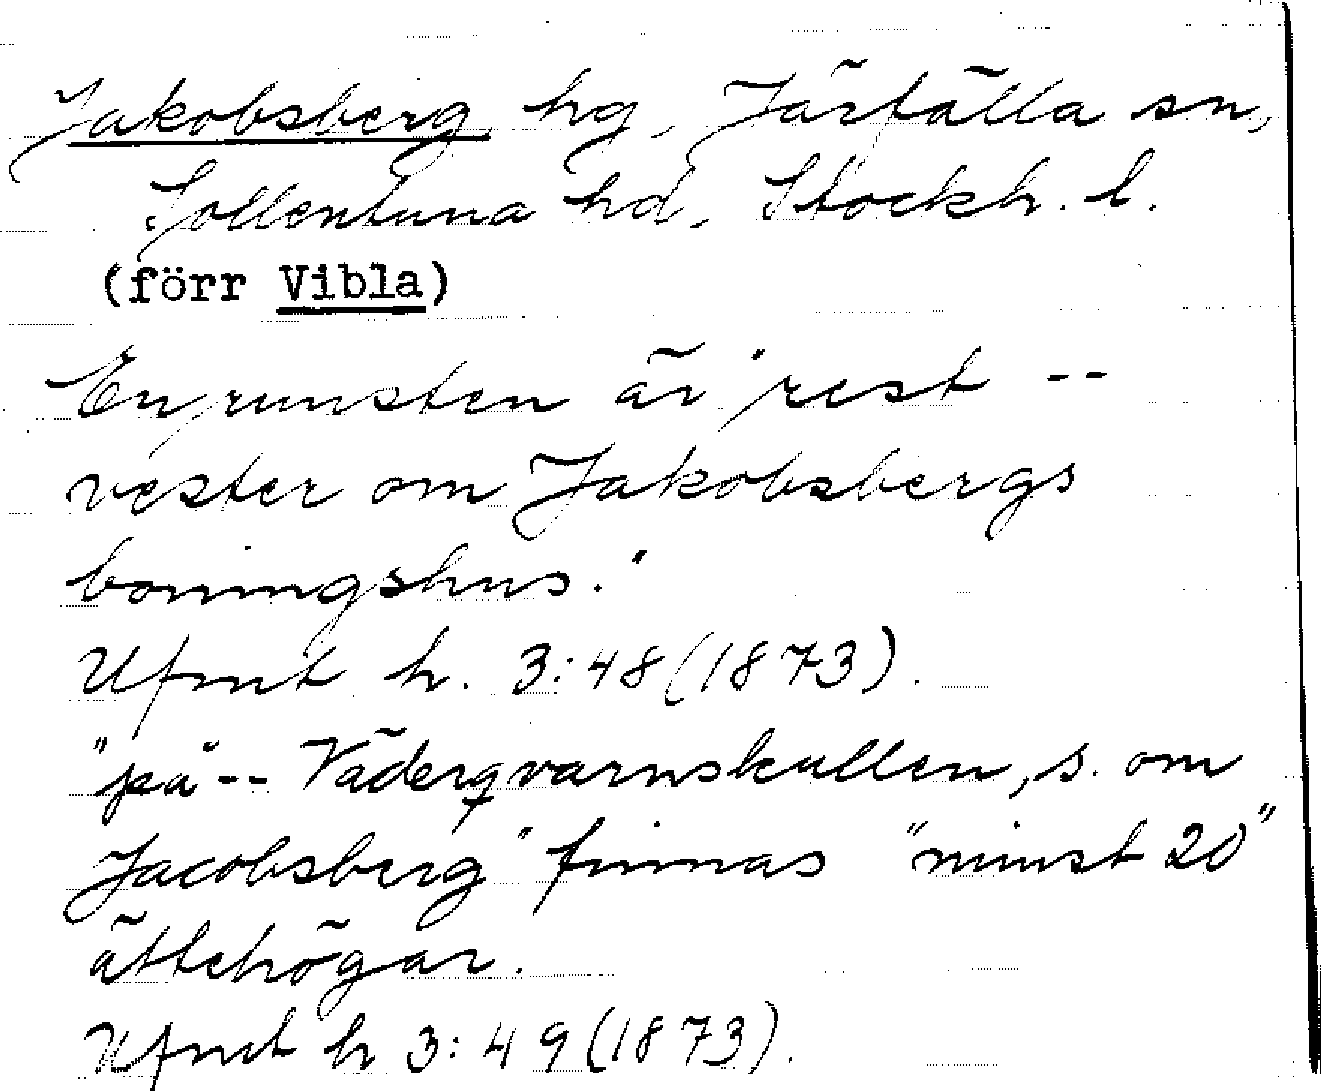 Jakobsberg hg, Järfälla sn,
Sollentuna hd, Stockh. l.
(förr Vibla)
En runsten är "rest --
vester om Jakobsbergs
boningshus."
Ufmt h. 3:48 (1873).
"på -- Väderqvarnskullen, s. om
Jacobsberg" finnas "minst 20"
ättehögar.
Ufmt h 3:49 (1873).